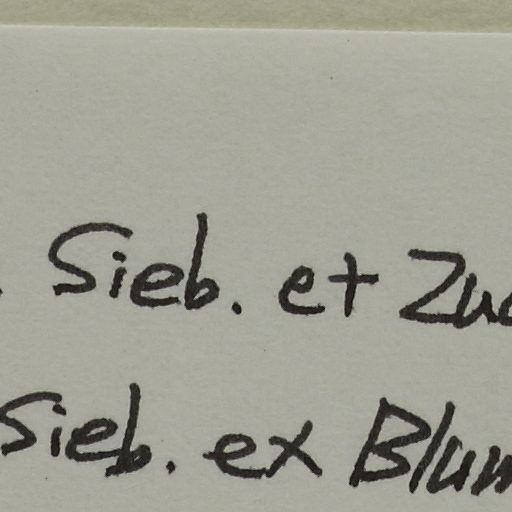 Sieb. et Zuc
Sieb. ex Blum